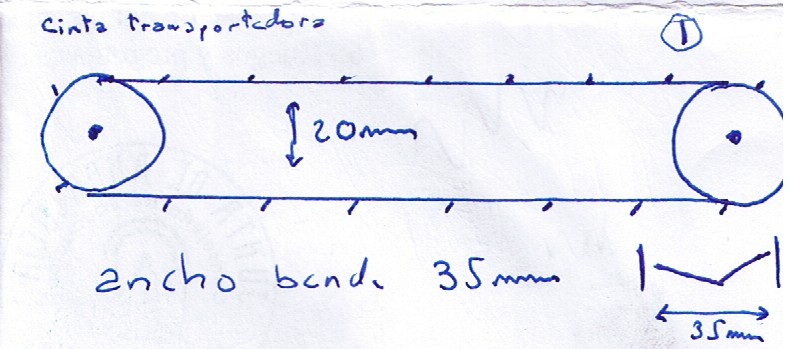 Cinta transportadora
1
20mm
ancho banda 35mm
35mm